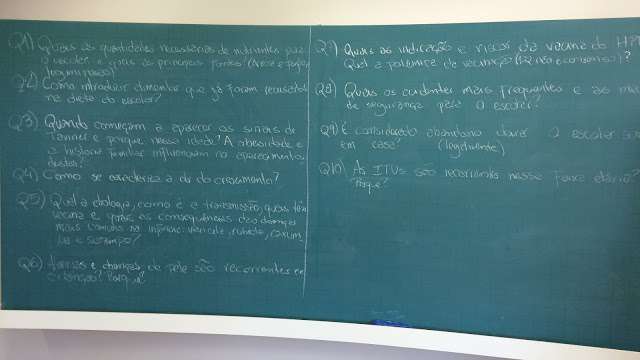 Q1) Quais as quantidades necessárias de nutrientes para
o escolar e quais as principais fontes (
Q2) Como introduzir alimentos que já foram recusados
na dieta do escolar?
Q3) Quando começam a aparecer os sinais de
Tanner e porque nessa idade? A obesidade e
a história familiar influenciam no aparecimento
destes?
Q4) Como se caracteriza a dor do crescimento?
Q5) Qual a etiologia, como é a transmissão, quais têm
vacina e quais as consequências das doenças
mais comuns na infância: varicela, rubéola, caxum
ba e sarampo?
Q6) e de pele são recorrentes em
crianças? Porque?
Q7) Quais as indicação e riscos da vacina do HPV
Qual a polêmica da vacinação ( )?
Q8) Quais os acidentes mais frequentes e as
de segurança para o escolar?
Q9) É considerado abandono deixar o escolar
em casa? (legalmente)
Q10) As ITUs são recorrentes nessa faixa etária?
Porque?